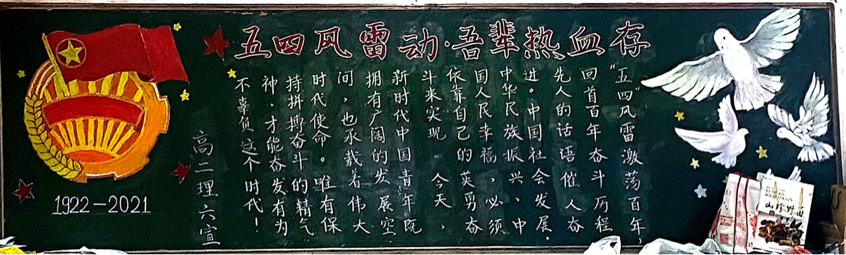 五四风雷动·吾辈热血存
"五四"风雷激荡百年，
回首百年奋斗历程
先人的话语催人奋
进。中国社会发展，
中华民族振兴，中
国人民幸福，必须
依靠自己的英勇奋
斗来实现。今天，
新时代中国青年既
拥有广阔的发展空
间，也承载着伟大
时代使命。唯有保
持拼搏奋斗的精气
神，才能奋发有为
不辜负这个时代！
高二理六宣
1922-2021